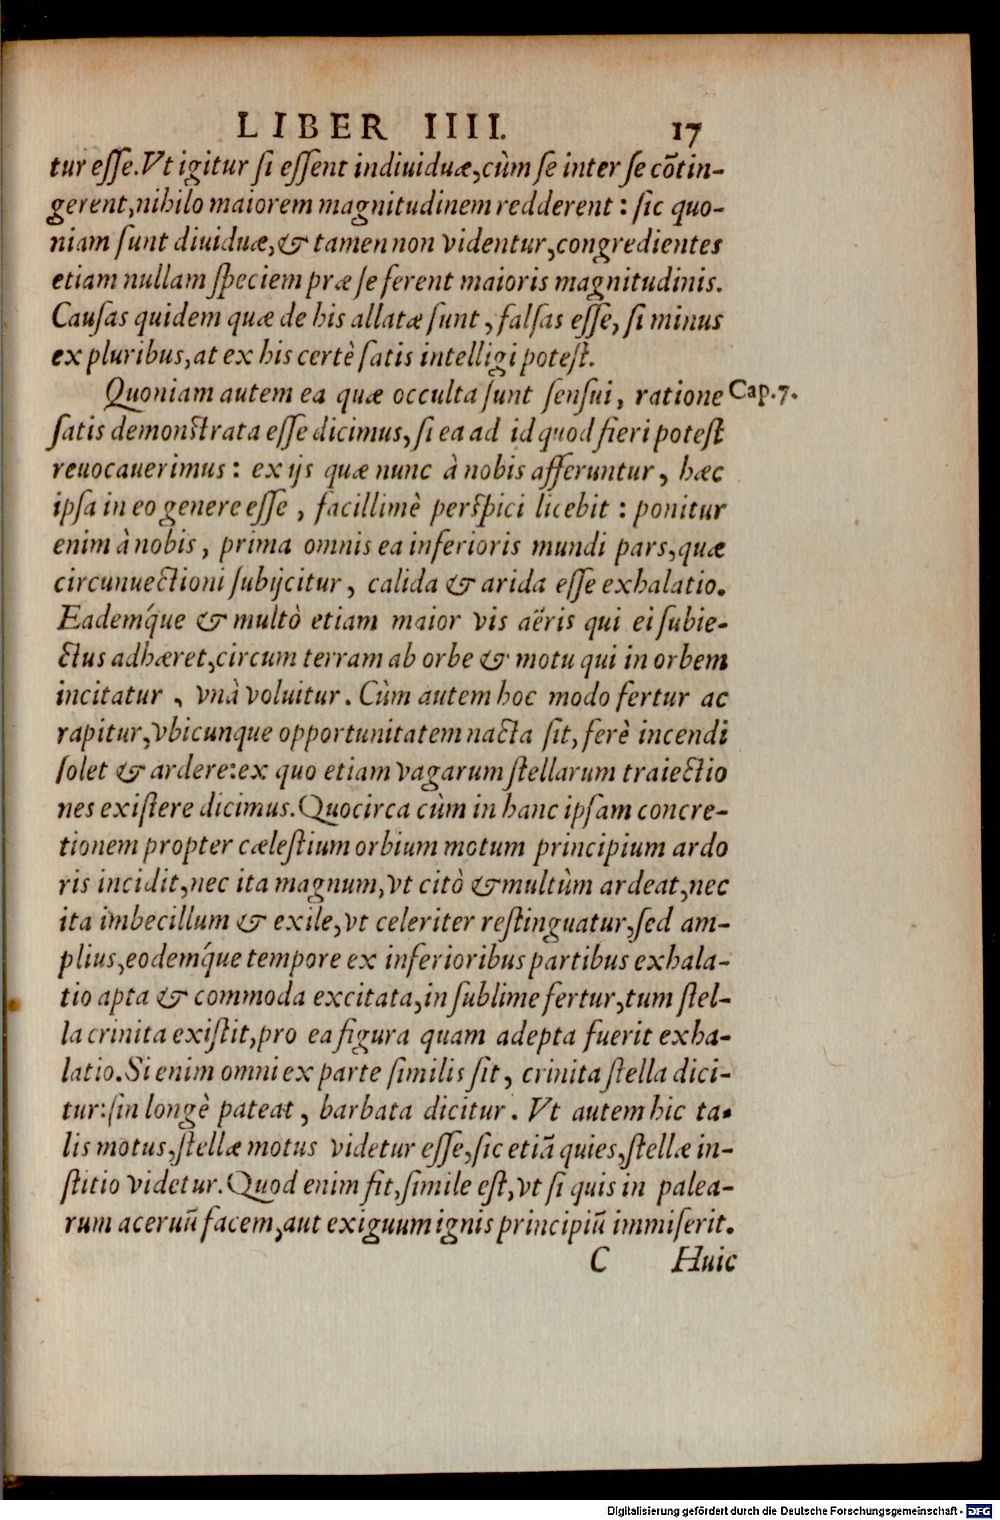 LIBER IIII. 17
tur eſſe. Vt igitur ſi eſſent indiuiduæ, cùm ſe inter ſe cõtin-
gerent, nihilo maiorem magnitudinem redderent : ſic quo-
niam ſunt diuiduæ, & tamen non videntur, congredientes
etiam nullam ſpeciem præ ſe ferent maioris magnitudinis.
Cauſas quidem quæ de his allatæ ſunt, falſas eſſe, ſi minus
ex pluribus, at ex his certè ſatis intelligi poteſt.
Quoniam autem ea quæ occulta ſunt ſenſui, ratione Cap. 7.
ſatis demonſtrata eſſe dicimus, ſi ea ad id quod fieri poteſt
reuocauerimus : ex ijs quæ nunc à nobis afferuntur, hæc
ipſa in eo genere eſſe, facillimè perſpici licebit : ponitur
enim à nobis, prima omnis ea inferioris mundi pars, quæ
circunuectioni ſubijcitur, calida & arida eſſe exhalatio.
Eademq́ue & multò etiam maior vis aëris qui ei ſubie-
ctus adhæret, circum terram ab orbe & motu qui in orbem
incitatur, vnà voluitur. Cùm autem hoc modo fertur ac
rapitur, vbicunque opportunitatem nacta ſit, ferè incendi
ſolet & ardere: ex quo etiam vagarum ſtellarum traiectio
nes exiſtere dicimus. Quocirca cùm in hanc ipſam concre-
tionem propter cæleſtium orbium motum principium ardo
ris incidit, nec ita magnum, vt citò & multùm ardeat, nec
ita imbecillum & exile, vt celeriter reſtinguatur, ſed am-
plius, eodemq́ue tempore ex inferioribus partibus exhala-
tio apta & commoda excitata, in ſublime fertur, tum ſtel-
la crinita exiſtit, pro ea figura quam adepta fuerit exha-
latio. Si enim omni ex parte ſimilis ſit, crinita ſtella dici-
tur: ſin longè pateat, barbata dicitur. Vt autem hic ta-
lis motus, ſtellæ motus videtur eſſe, ſic etiã quies, ſtellæ in-
ſtitio videtur. Quod enim fit, ſimile eſt, vt ſi quis in palea-
rum aceruũ facem, aut exiguum ignis principiũ immiſerit.
C Huic
Digitalisierung gefördert durch die Deutsche Forschungsgemeinschaft - DFG